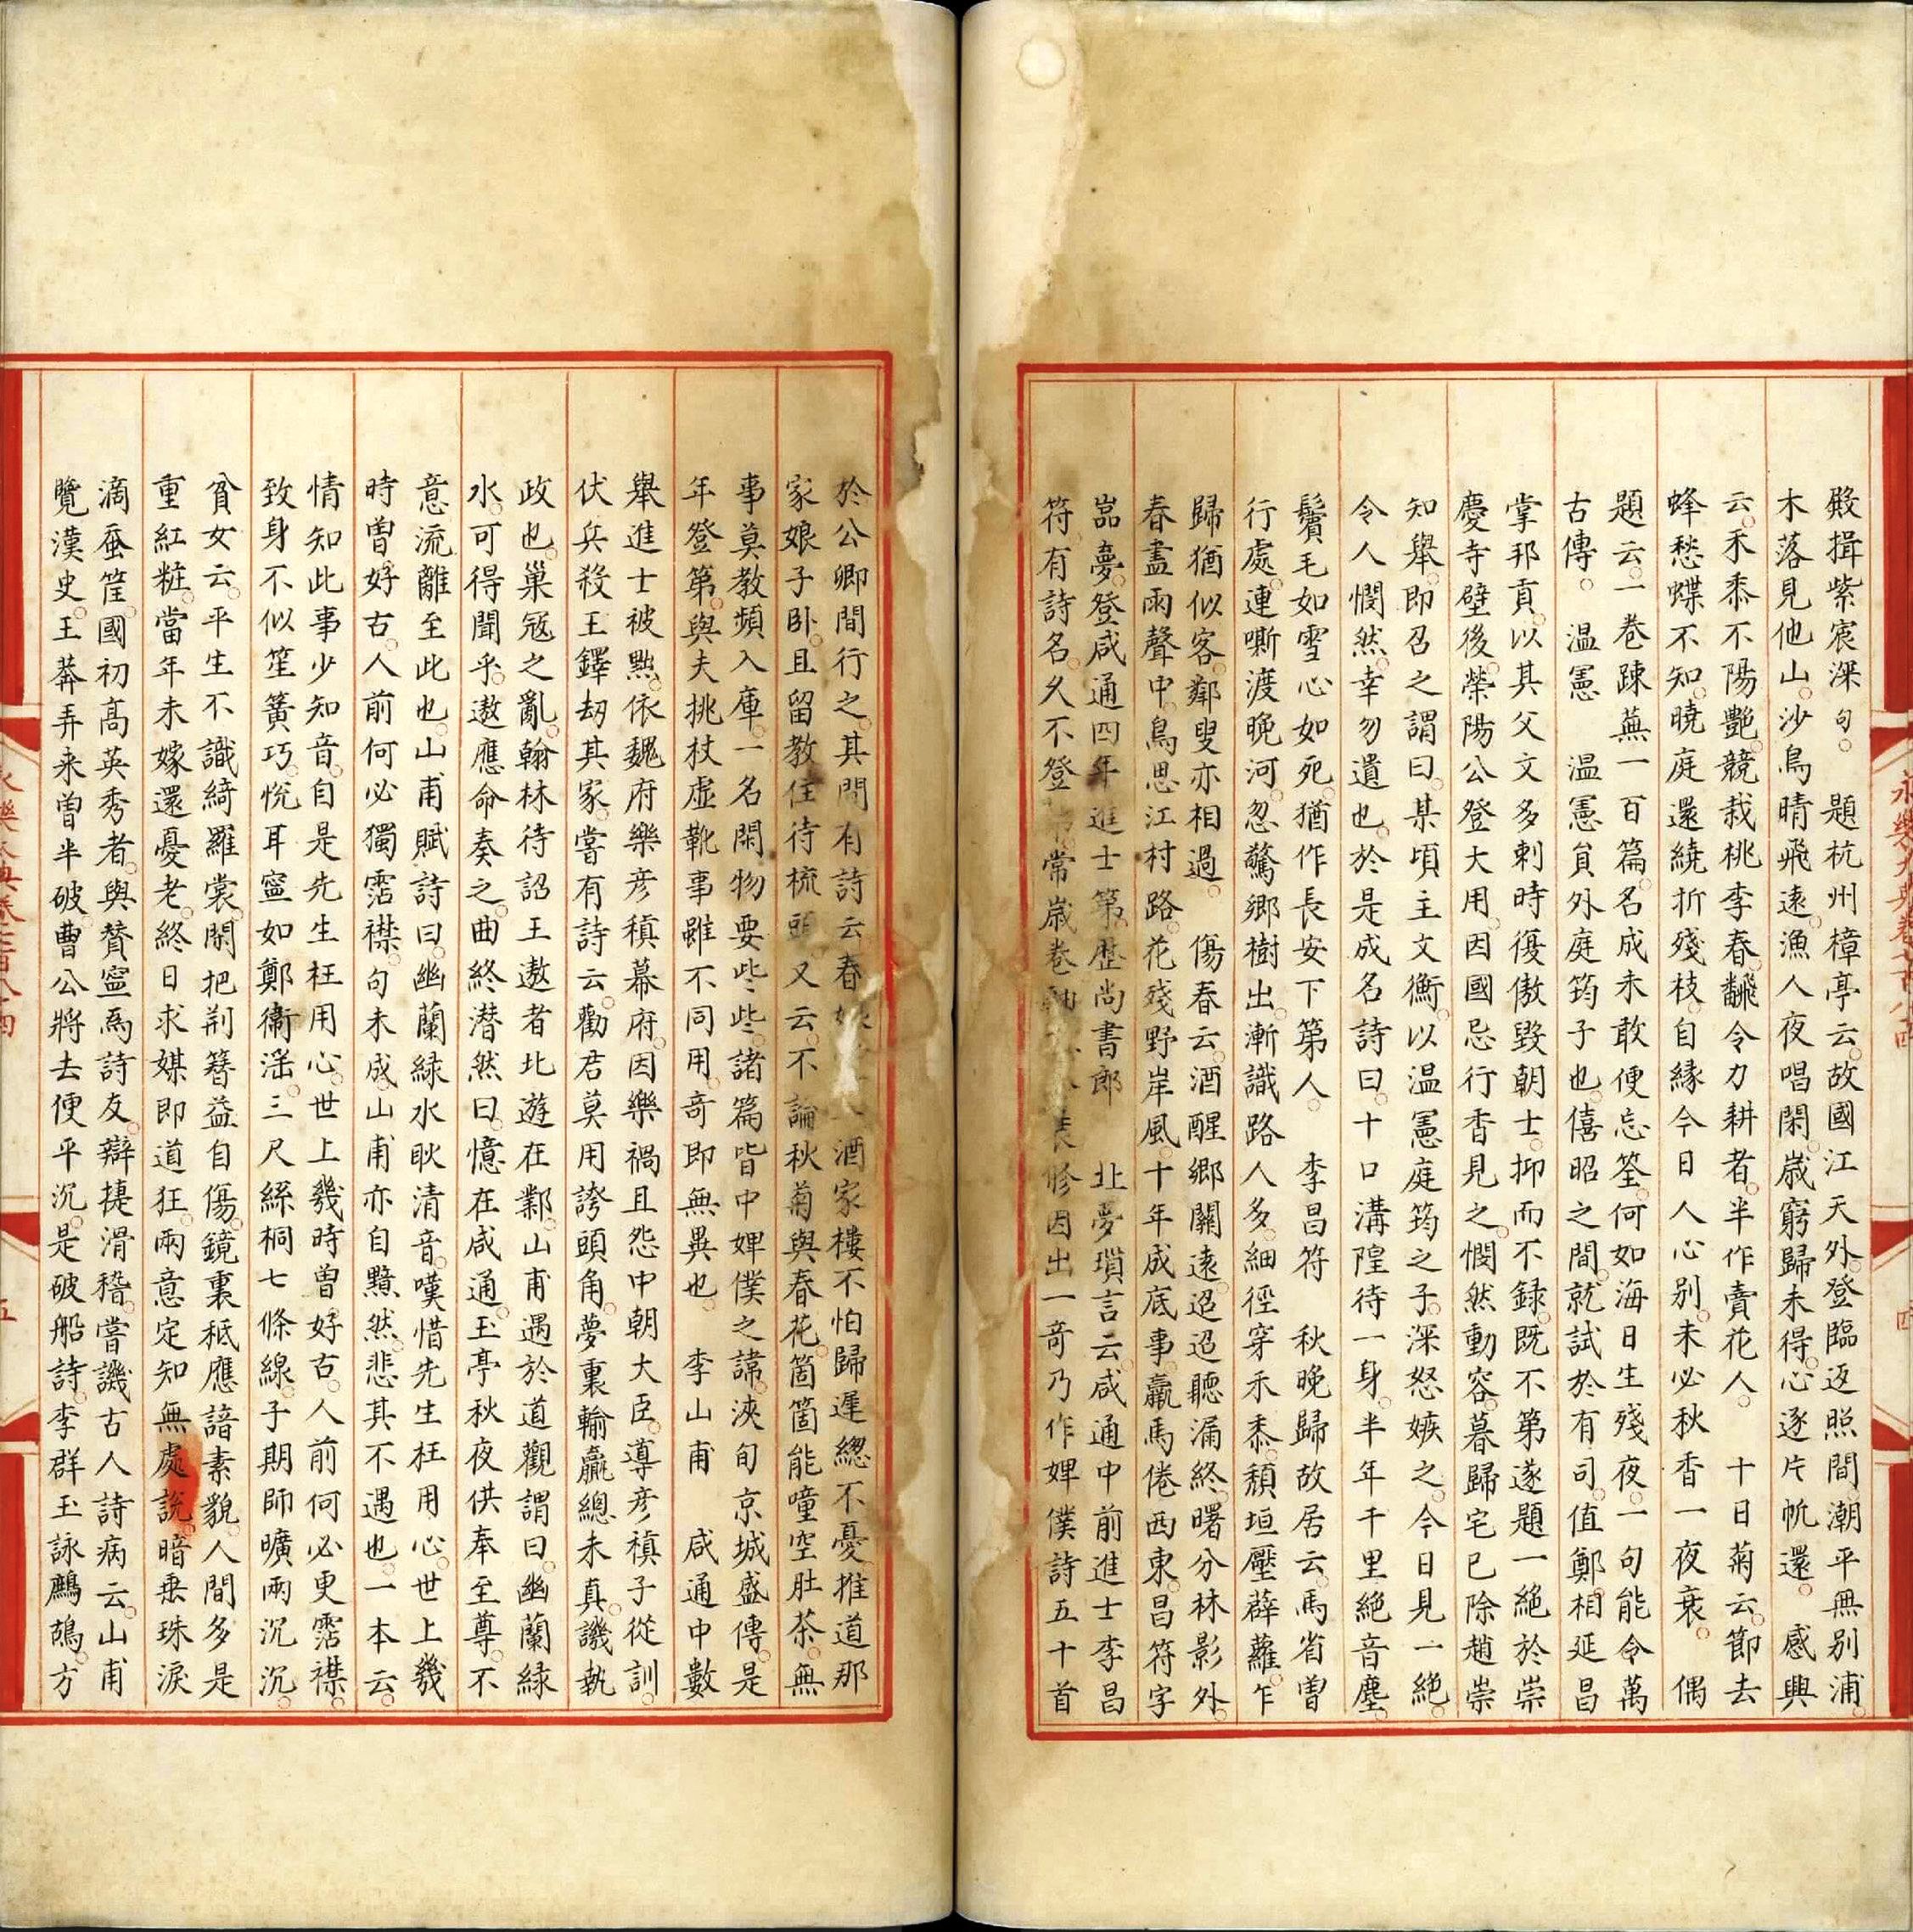 殿揖紫宸深句 題杭州樟亭云故國江天外登臨返照間潮平無别浦
木落見他山沙鳥晴飛遠漁人夜唱閑歳窮歸未得心逐片帆還 感興
云禾黍不陽艷競栽桃李春飜令力耕者半作賣花人 十日菊云節去
蜂愁蝶不知曉庭還繞折殘枝自縁今日人心别未必秋香一夜衰 偶
題云一巻踈蕪一百篇名成未敢便忘筌何如海日生殘夜一句能令萬
古傳 温憲 温憲貟外庭筠子也僖昭之間就試於有司值鄭相延昌
掌邦貢以其父文多刺時復傲毀朝士抑而不録既不第遂題一絶於崇
慶寺壁後滎陽公登大用因國忌行香見之憫然動容暮歸宅已除趙崇
知舉即召之謂曰某頃主文衡以温憲庭筠之子深怒嫉之今日見一絶
令人憫然幸勿遺也於是成名詩曰十口溝隍待一身半年千里絶音塵
鬢毛如雪心如死猶作長安下第人 李昌符 秋晚歸故居云馬省曽
行處連嘶渡晚河忽驚鄉樹出漸識路人多細徑穿禾黍頽垣壓薜蘿乍
歸猶似客鄰叟亦相過 傷春云酒醒鄉關遠迢迢聽漏終曙分林影外
春盡雨聲中鳥思江村路花殘野岸風十年成底事羸馬倦西東昌符字
嵓夢登咸通四年進士第歷尚書郎 北夢瑣言云咸通中前進士李昌
符有詩名久不登常歳巻軸修因出一奇乃作婢僕詩五十首
於公卿間行之其間有詩云春酒家樓不怕歸遲緫不憂推道那
家娘子卧且留教住待梳頭又云不論秋菊與春花箇箇能噇空肚茶無
事莫教頻入庫一名閑物要些些諸篇皆中婢僕之諱浹旬京城盛傳是
年登第與夫挑杖虛靴事雖不同用奇即無異也 李山甫 咸通中數
舉進士被㸃依魏府樂彦稹幕府因樂禍且怨中朝大臣導彦稹子從訓
伏兵殺王鐸刼其家嘗有詩云勸君莫用誇頭角夢裏輸贏總未真譏執
政也巢冦之亂翰林待詔王遨者北遊在鄴山甫遇於道觀謂曰幽蘭緑
水可得聞乎遨應命奏之曲終潛然曰憶在咸通玉亭秋夜供奉至尊不
意流離至此也山甫賦詩曰幽蘭緑水耿清音嘆惜先生枉用心世上幾
時曽好古人前何必獨霑襟句未成山甫亦自黯然悲其不遇也一本云
情知此事少知音自是先生枉用心世上幾時曽好古人前何必更霑襟
致身不似笙簧巧悅耳寧如鄭衞滛三尺絲桐七條線子期師曠兩沉沉
貧女云平生不識綺羅裳閑把荆簪益自傷鏡裏秪應諳素貌人間多是
重紅粧當年未嫁還憂老終日求媒即道狂兩意定知無處說暗垂珠淚
滴蚕筐國初髙英秀者與贊寧爲詩友辯捷滑稽嘗譏古人詩病云山甫
覽漢史王莽弄来曽半破曹公將去便平沉是破船詩李群玉詠鷓鴣方